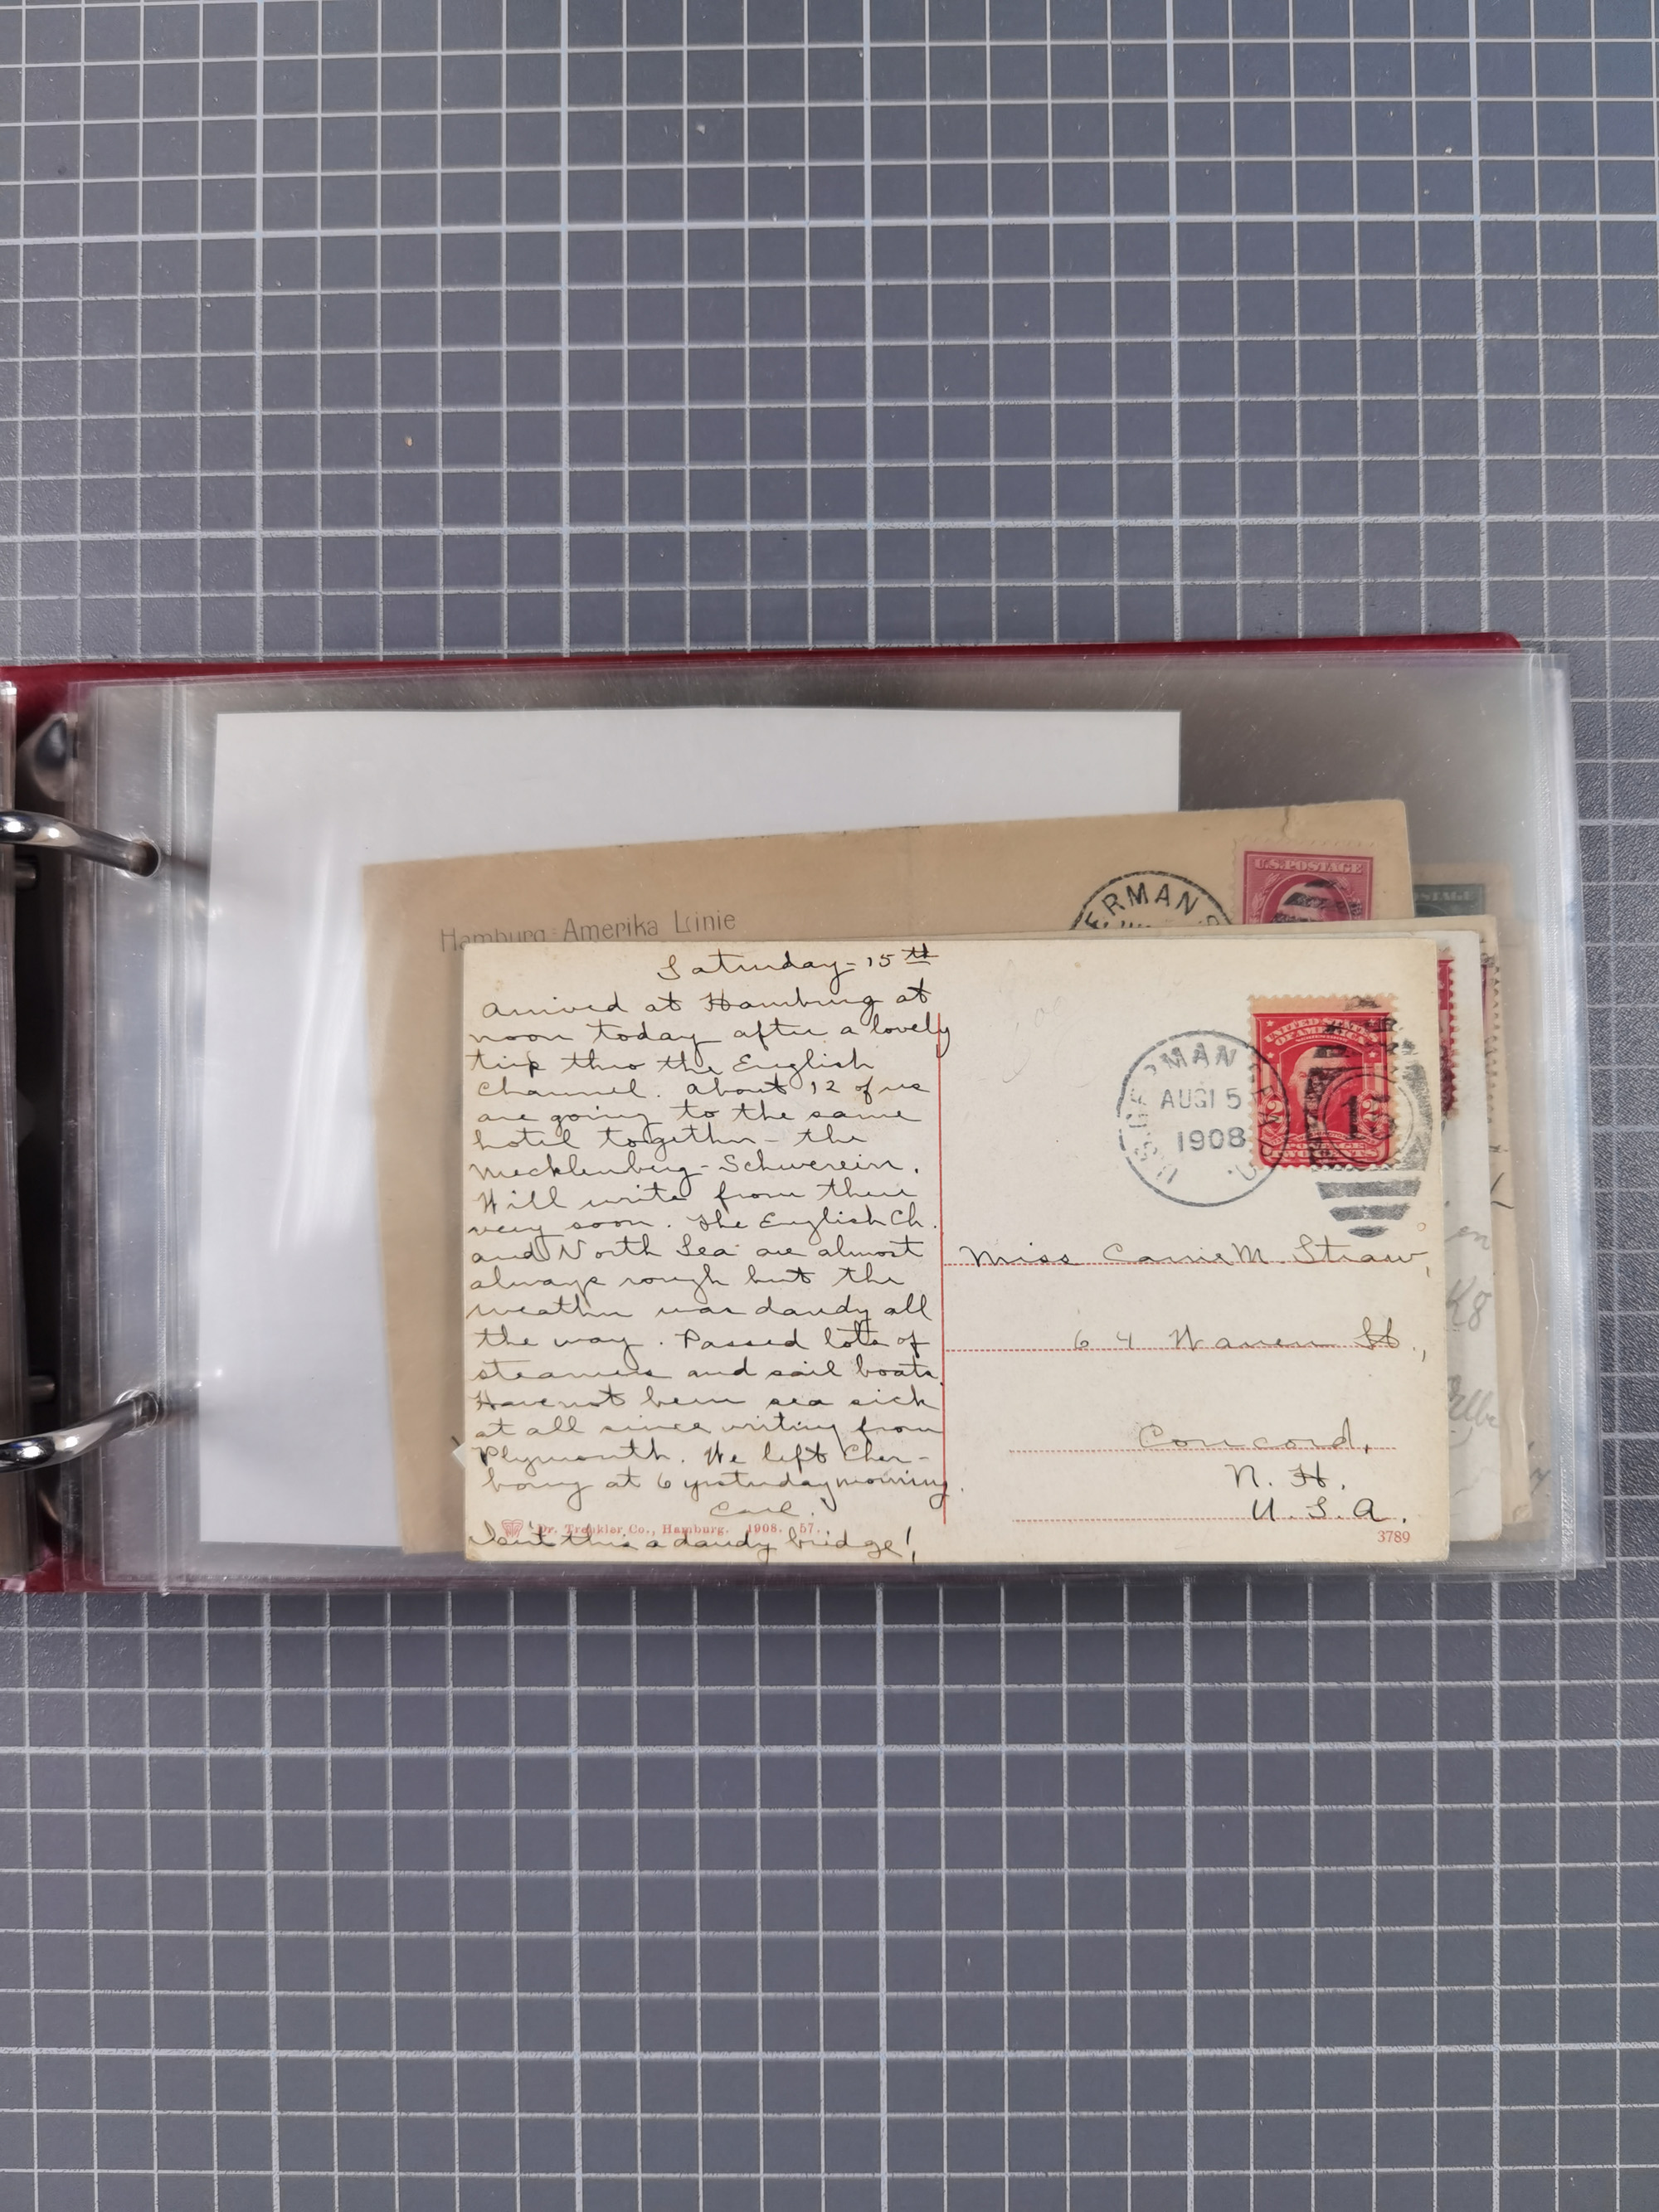 Hamburg-Amerika Linie
ERMAN
U.S.POSTAGE
Saturday - 15th
Arrived at Hamburg at
noon today after a lovely
trip thro the English
Channel. About 12 of us
are going to the same
hotel together - the
Mecklenberg-Schwerein.
Will write from there
very soon. The English Ch.
and North Sea are almost
always rough but the
weather was dandy all
the way. Passed lots of
steamers and sail boats.
Have not been sea sick
at all since writing from
Plymouth. We left Cher-
bourg at 6 yesterday morning.
Carl.
Isn't this a dandy bridge!
Dr. Trenkler Co., Hamburg. 1908. 57.
U.S. GERMAN SEA
AUG 15
1908
UNITED STATES
OF AMERICA
2 2
TWO CENTS
15
Miss Carrie M. Straw,
64 Warren St.,
Concord,
N. H.
U. S. A.
3789
en
K8